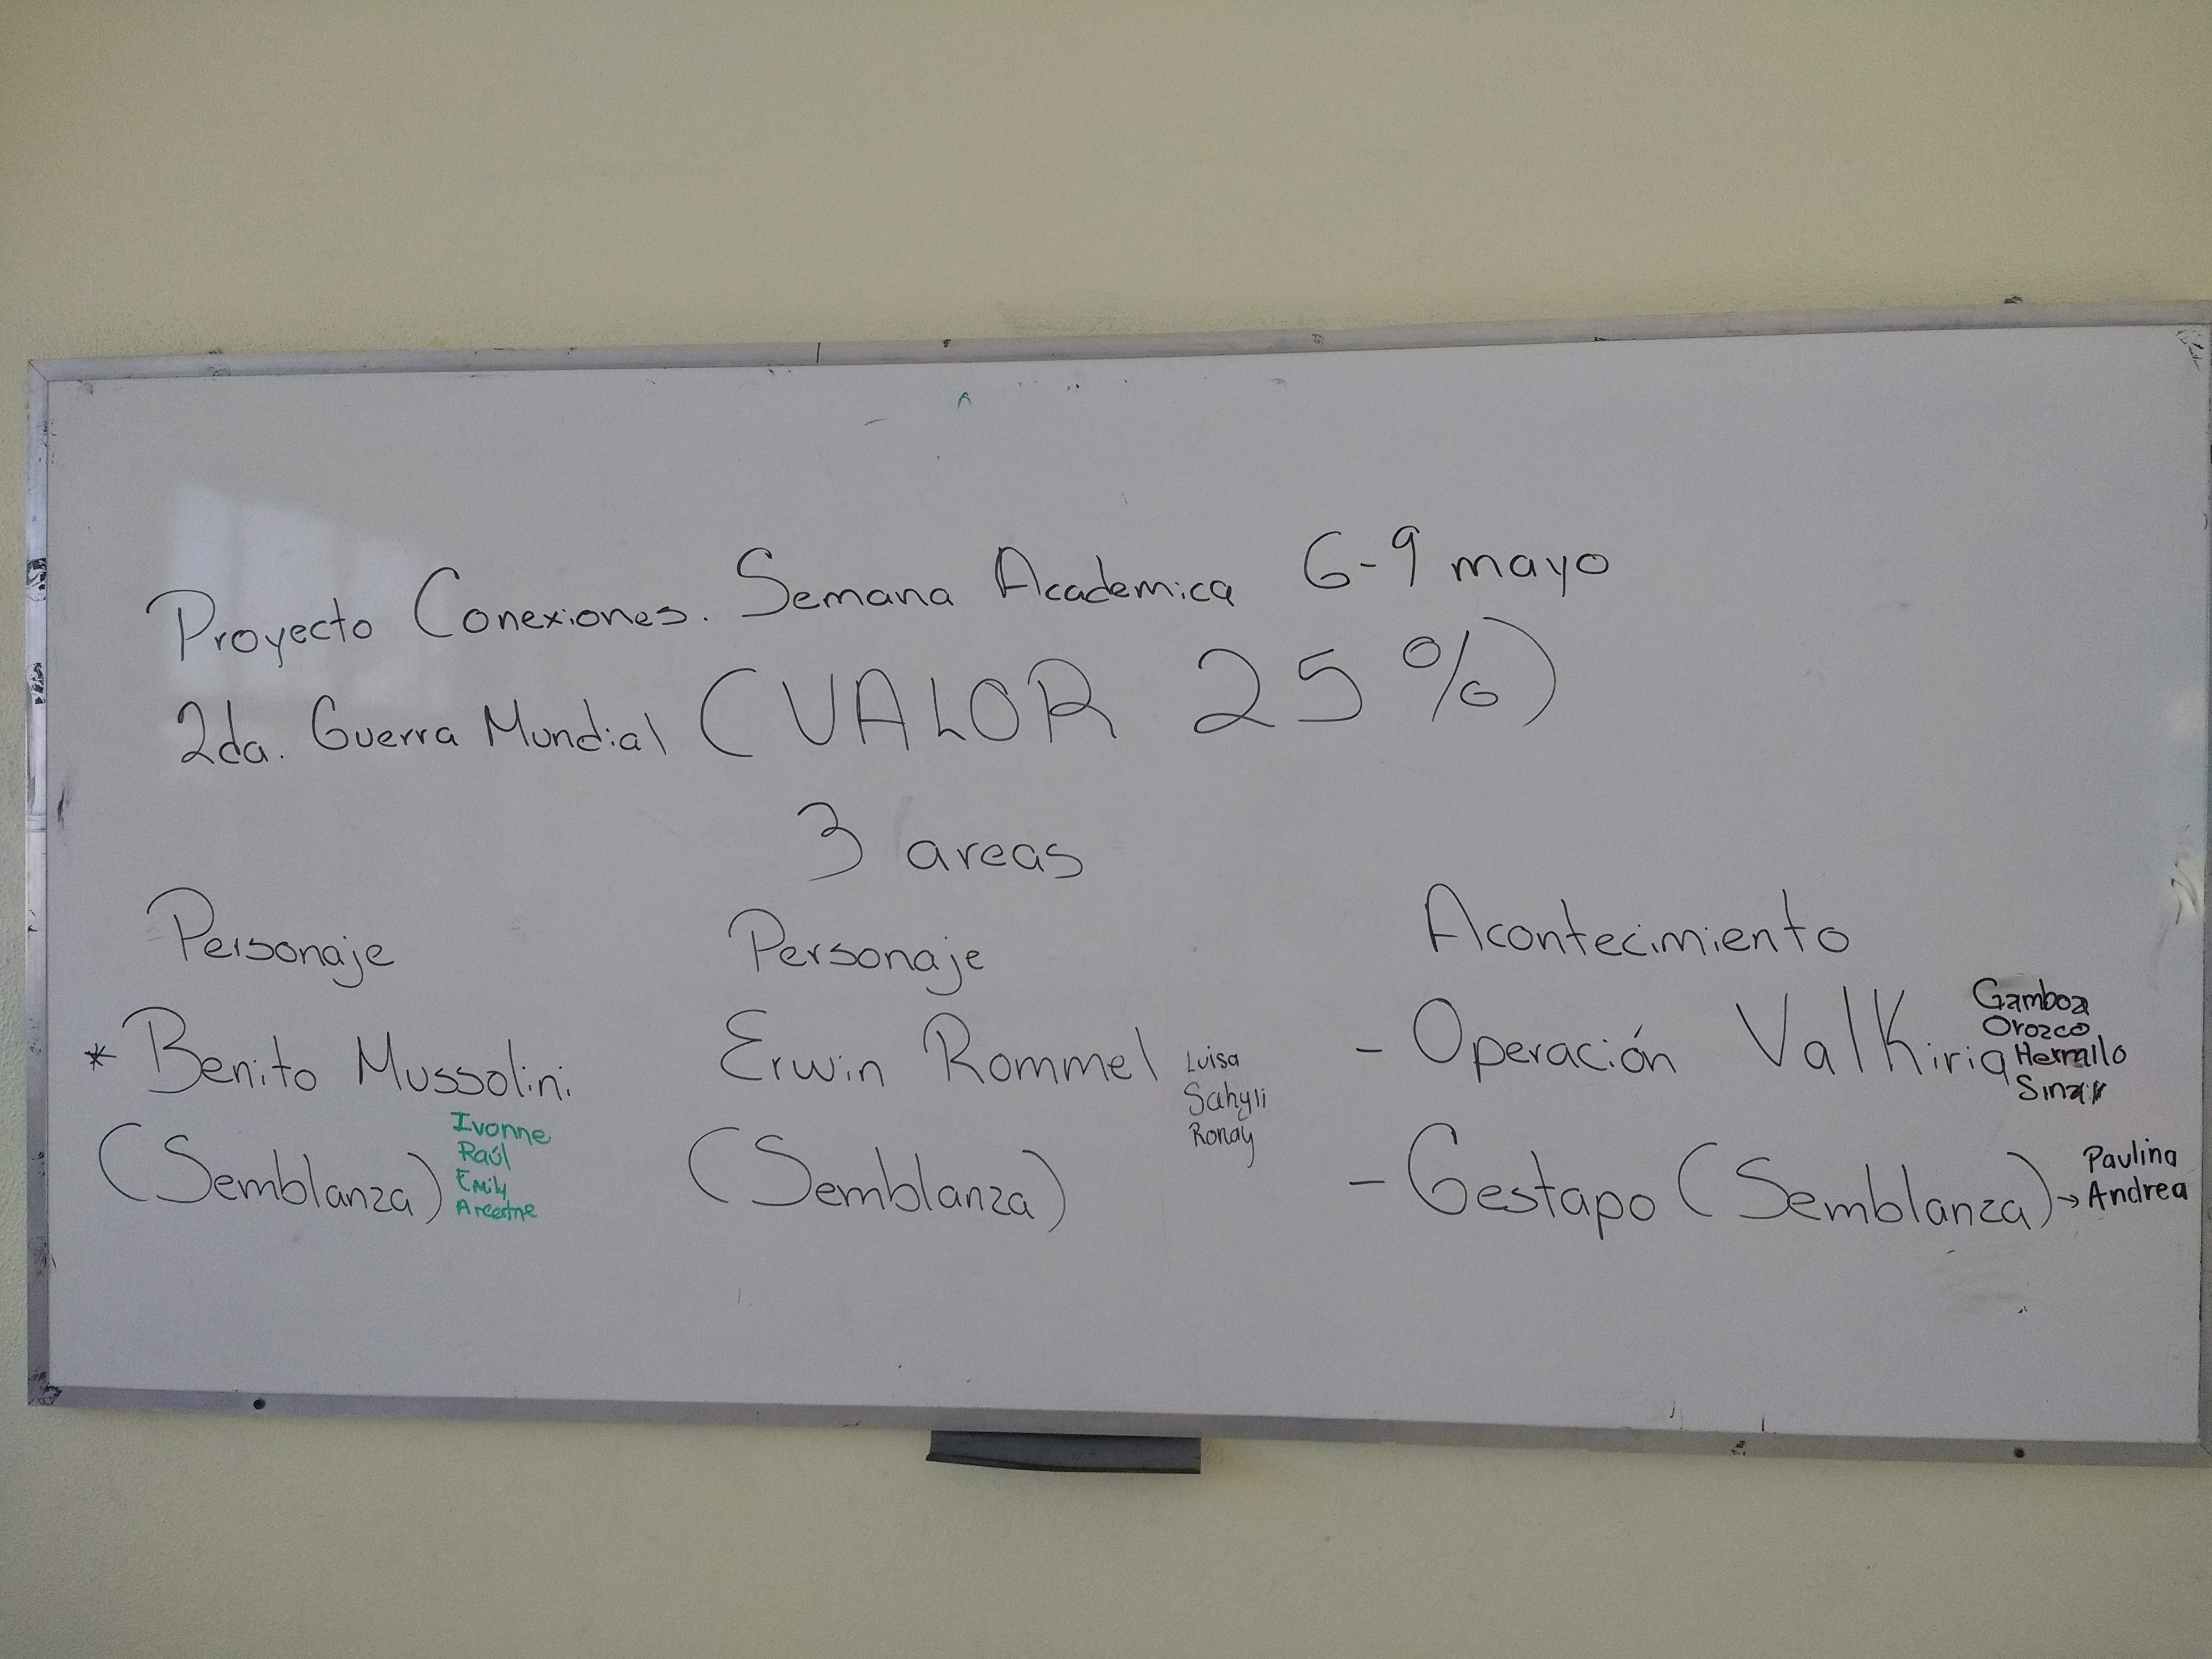 Proyecto Conexiones. Semana Academica 6-9 mayo
2da. Guerra Mundial (VALOR 25%)
3 areas
Personaje
* Benito Mussolini
(Semblanza)
Ivonne
Raúl
Emily
Personaje
Erwin Rommel
(Semblanza)
Luisa
Sahyli
Ronay
Acontecimiento
- Operación Valkiria
Gamboa
Orozco
Hermilo
- Gestapo (Semblanza) →
Paulina
Andrea